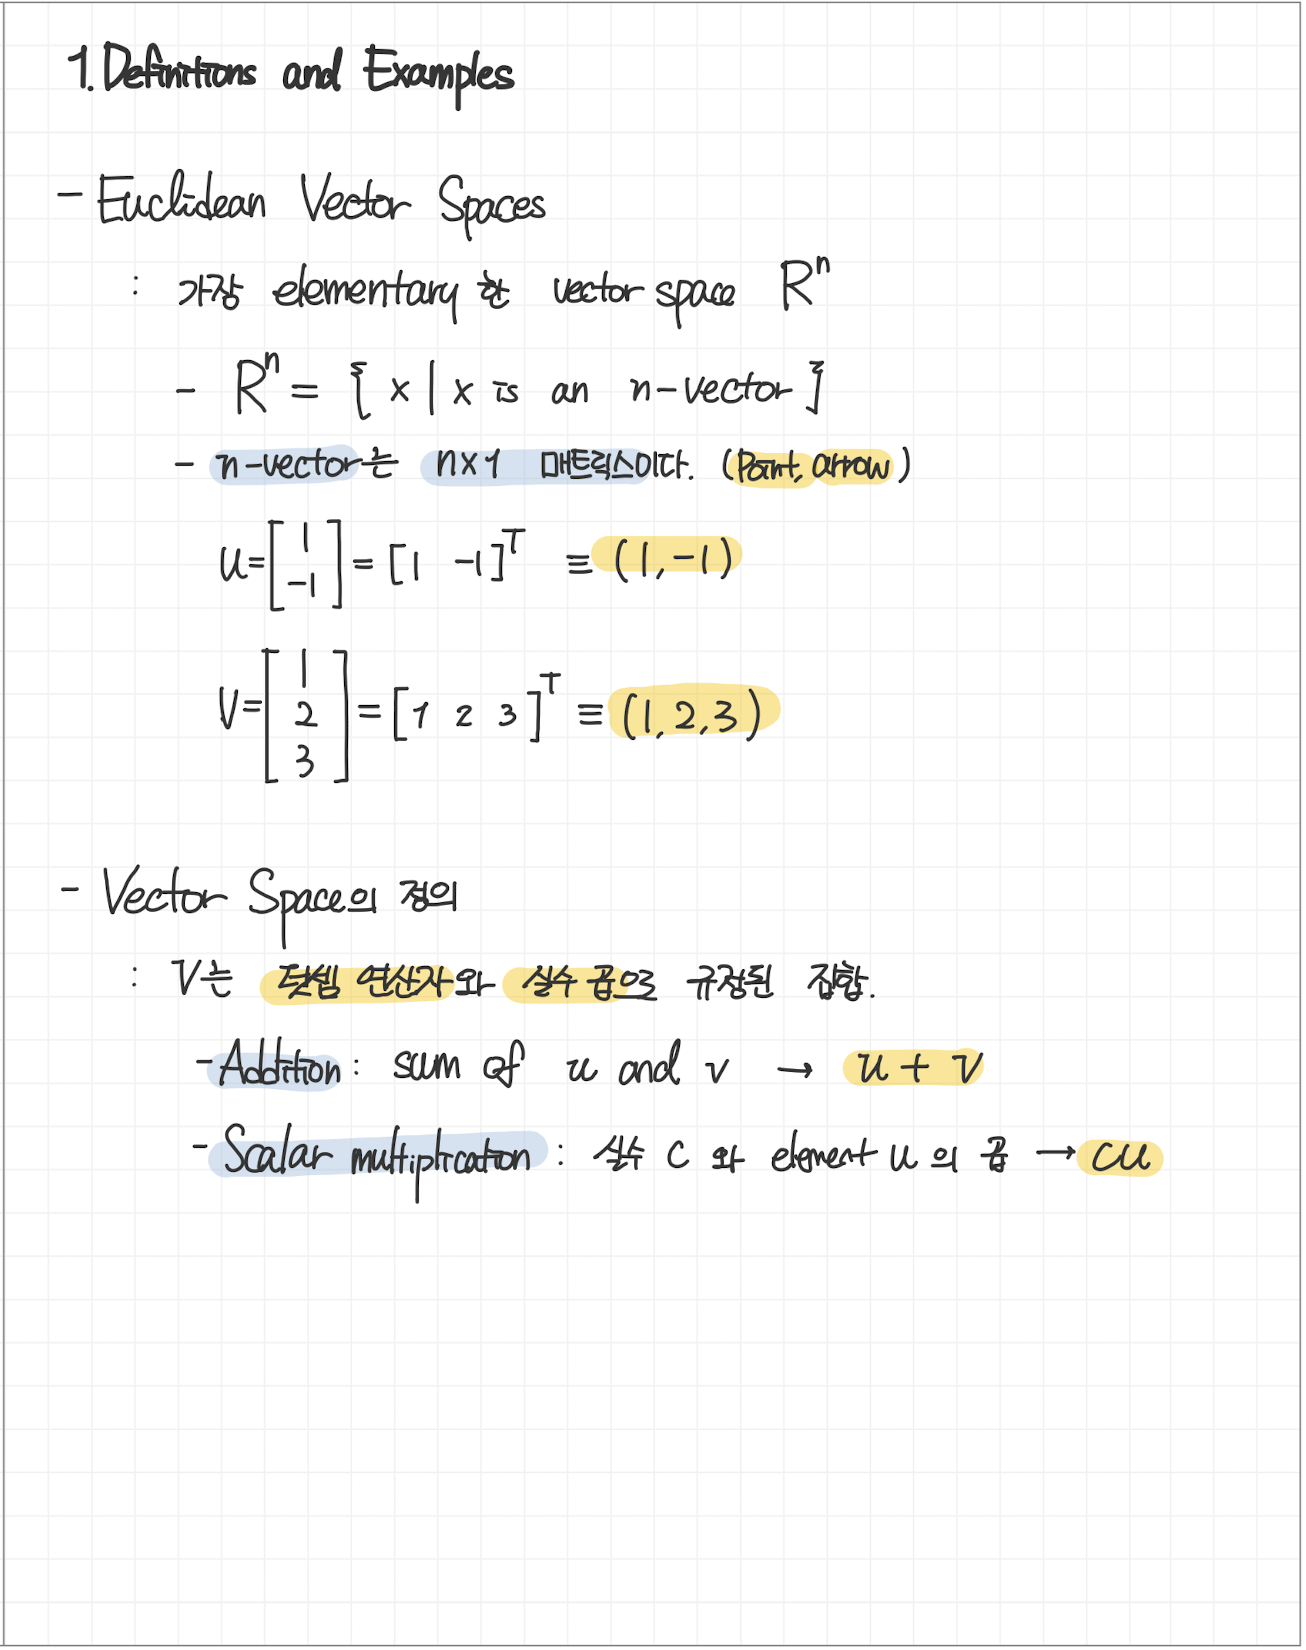 1. Definitions and Examples
- Euclidean Vector Spaces
: 가장 elementary 한 vector space Rⁿ
- Rⁿ = { x | x is an n-vector }
- n-vector는 n×1 매트릭스이다. (Point, arrow)
u = [1 -1] = [1 -1]ᵀ ≡ (1, -1)
V = [1 2 3] = [1 2 3]ᵀ ≡ (1, 2, 3)
- Vector Space의 정의
: V는 덧셈 연산자와 실수 곱으로 규정된 집합.
- Addition : sum of u and v → u + v
- Scalar multiplication : 실수 c 와 element u 의 곱 → cu